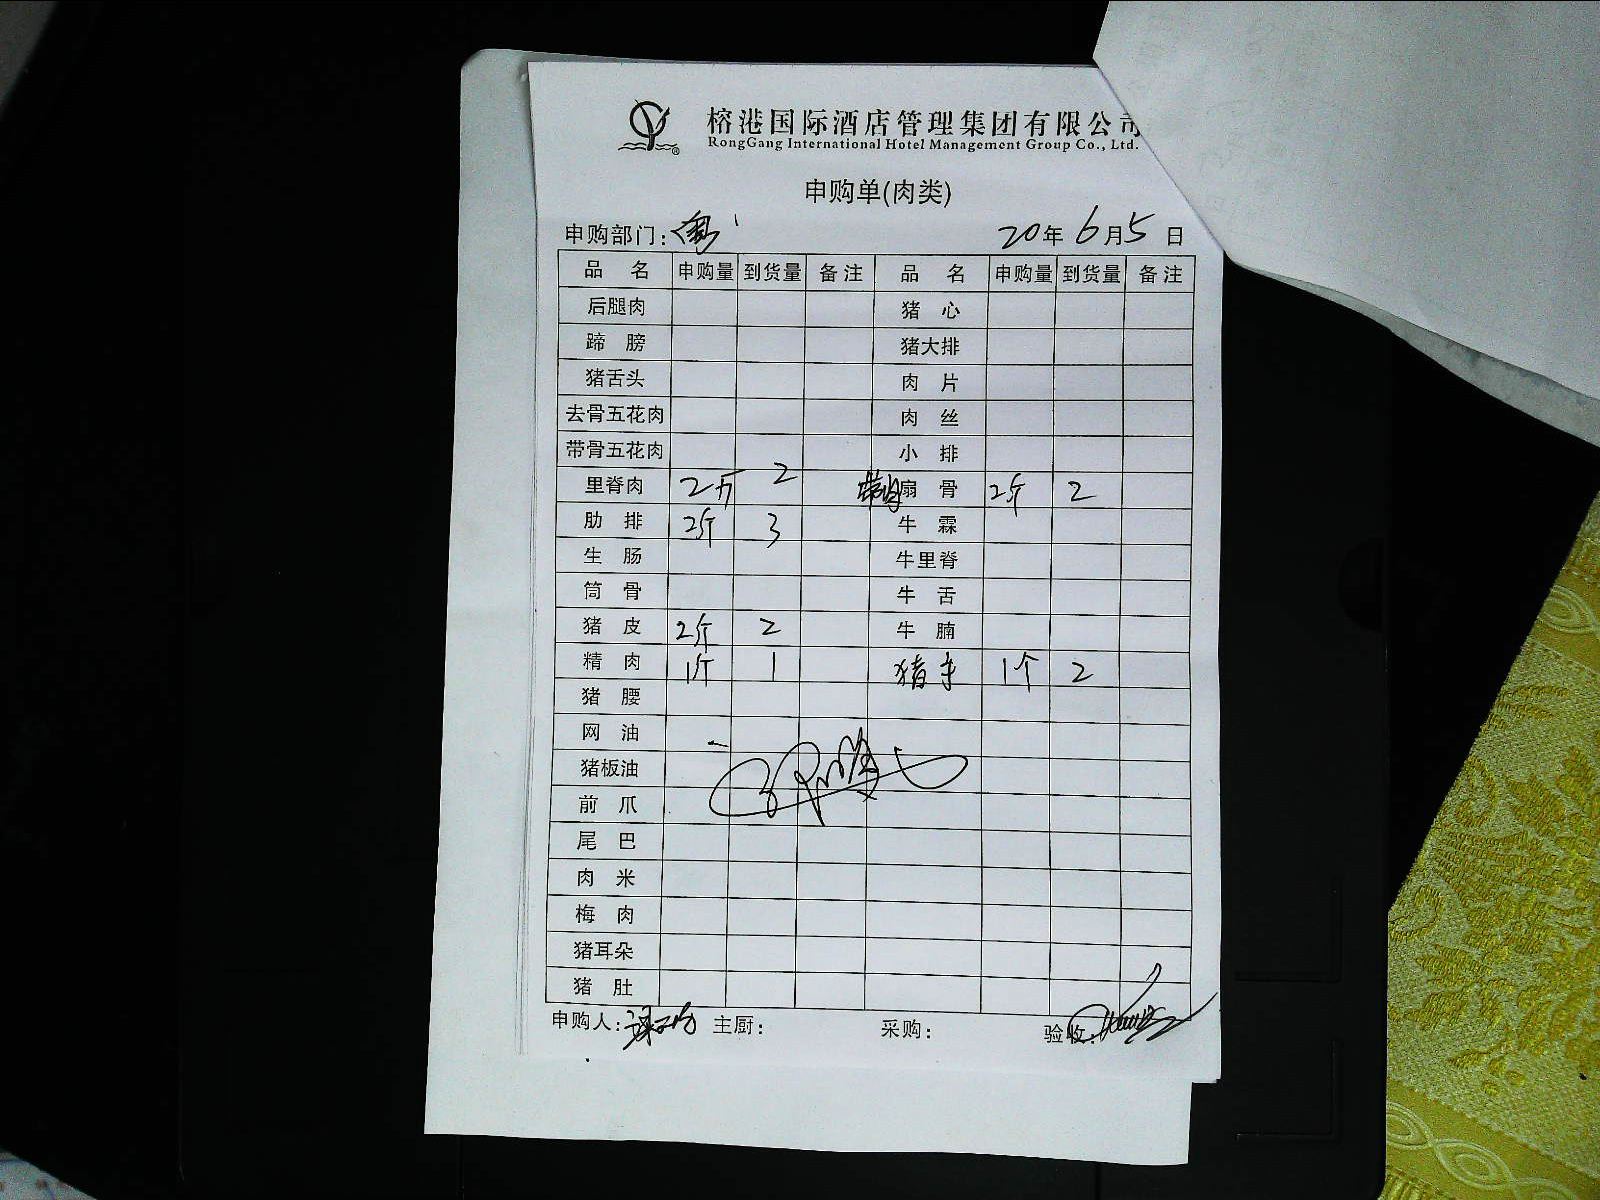 榕港国际酒店管理集团有限公司
RongGang International Hotel Management Group Co., Ltd.
申购单(肉类)
申购部门: 20年6月5日
品名 申购量 到货量 备注 品名 申购量 到货量 备注
后腿肉 猪心
蹄膀 猪大排
猪舌头 肉片
去骨五花肉 肉丝
带骨五花肉 小排
里脊肉 2斤 2 带肉扇骨 2斤 2
肋排 2斤 3 牛霖
生肠 牛里脊
筒骨 牛舌
猪皮 2斤 2 牛腩
精肉 1斤 1 猪手 1个 2
猪腰
网油
猪板油
前爪
尾巴
肉米
梅肉
猪耳朵
猪肚
申购人: 主厨: 采购: 验收: